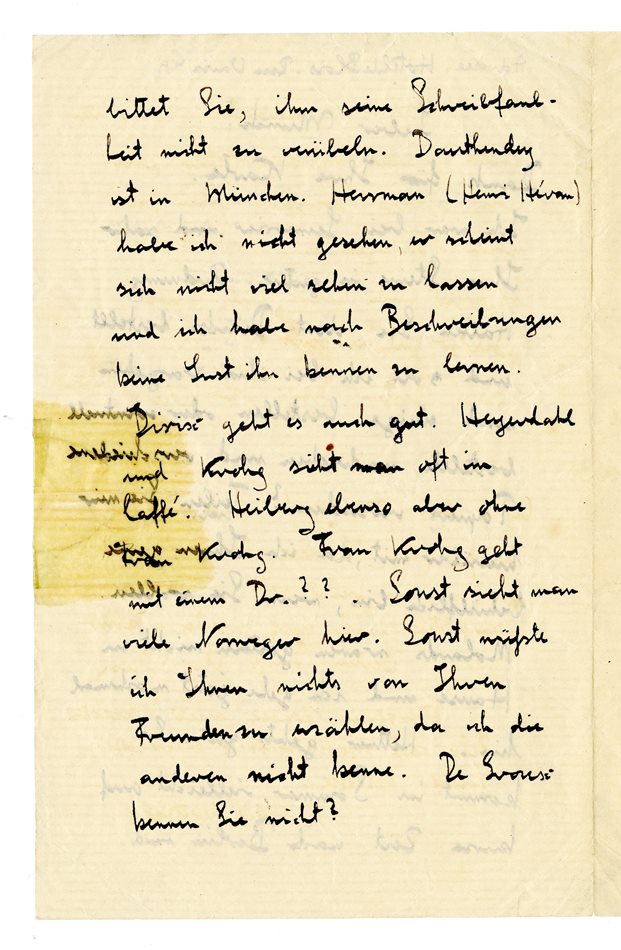 bittet Sie, ihm seine Schreibfaul-
heit nicht zu verübeln. Dauthendey
ist in München. Herrman (Henri Hévan)
habe ich nicht gesehen, er scheint
sich nicht viel sehen zu lassen
und ich habe nach Beschreibungen
keine Lust ihn kennen zu lernen.
geht es auch gut. Heyerdahl
und Krohg sieht man oft im
Caffé. Heiberg ebenso aber ohne
Frau Krohg. Frau Krohg geht
mit einem Dr. ? ? . Sonst sieht man
viele Norweger hier. Sonst müsste
ich Ihnen nichts von Ihren
Freunden zu erzählen, da ich die
anderen nicht kenne. De
kennen Sie nicht?